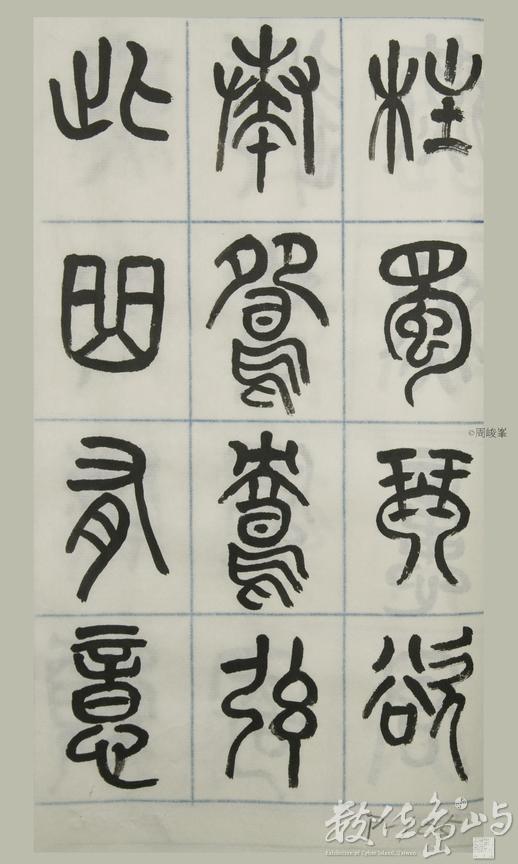 柱蜀琴欲
奏鴛鴦弦
此曲有意
©周峻峯
數位島嶼
Exhibition of Cyber Island, Taiwan